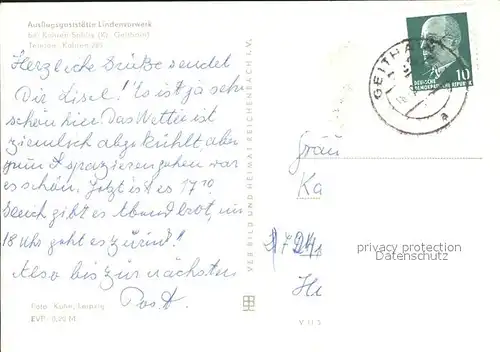 Ausflugsgaststätte Lindenvorwerk
bei Kohren-Sahlis (Kr. Geithain)
Telefon: Kohren 285
Herzliche Grüße sendet
Dir Lisel! Es ist ja sehr
schön hier. Das Wetter ist
ziemlich abgekühlt aber
zum spazierengehen war
es schön. Jetzt ist es 17¹⁰
gleich gibt es Abendbrot, um
18 Uhr geht es zurück!!
Also bis zur nächsten
Post.
Foto: Kühn, Leipzig
EVP 0,20 M
VEB BILD UND HEIMAT REICHENBACH I. V.
V 11 5
GEITHAIN
a
10
DEUTSCHE
DEMOKRATISCHE REPUBLIK
Frau
Ka
privacy protection
Datenschutz